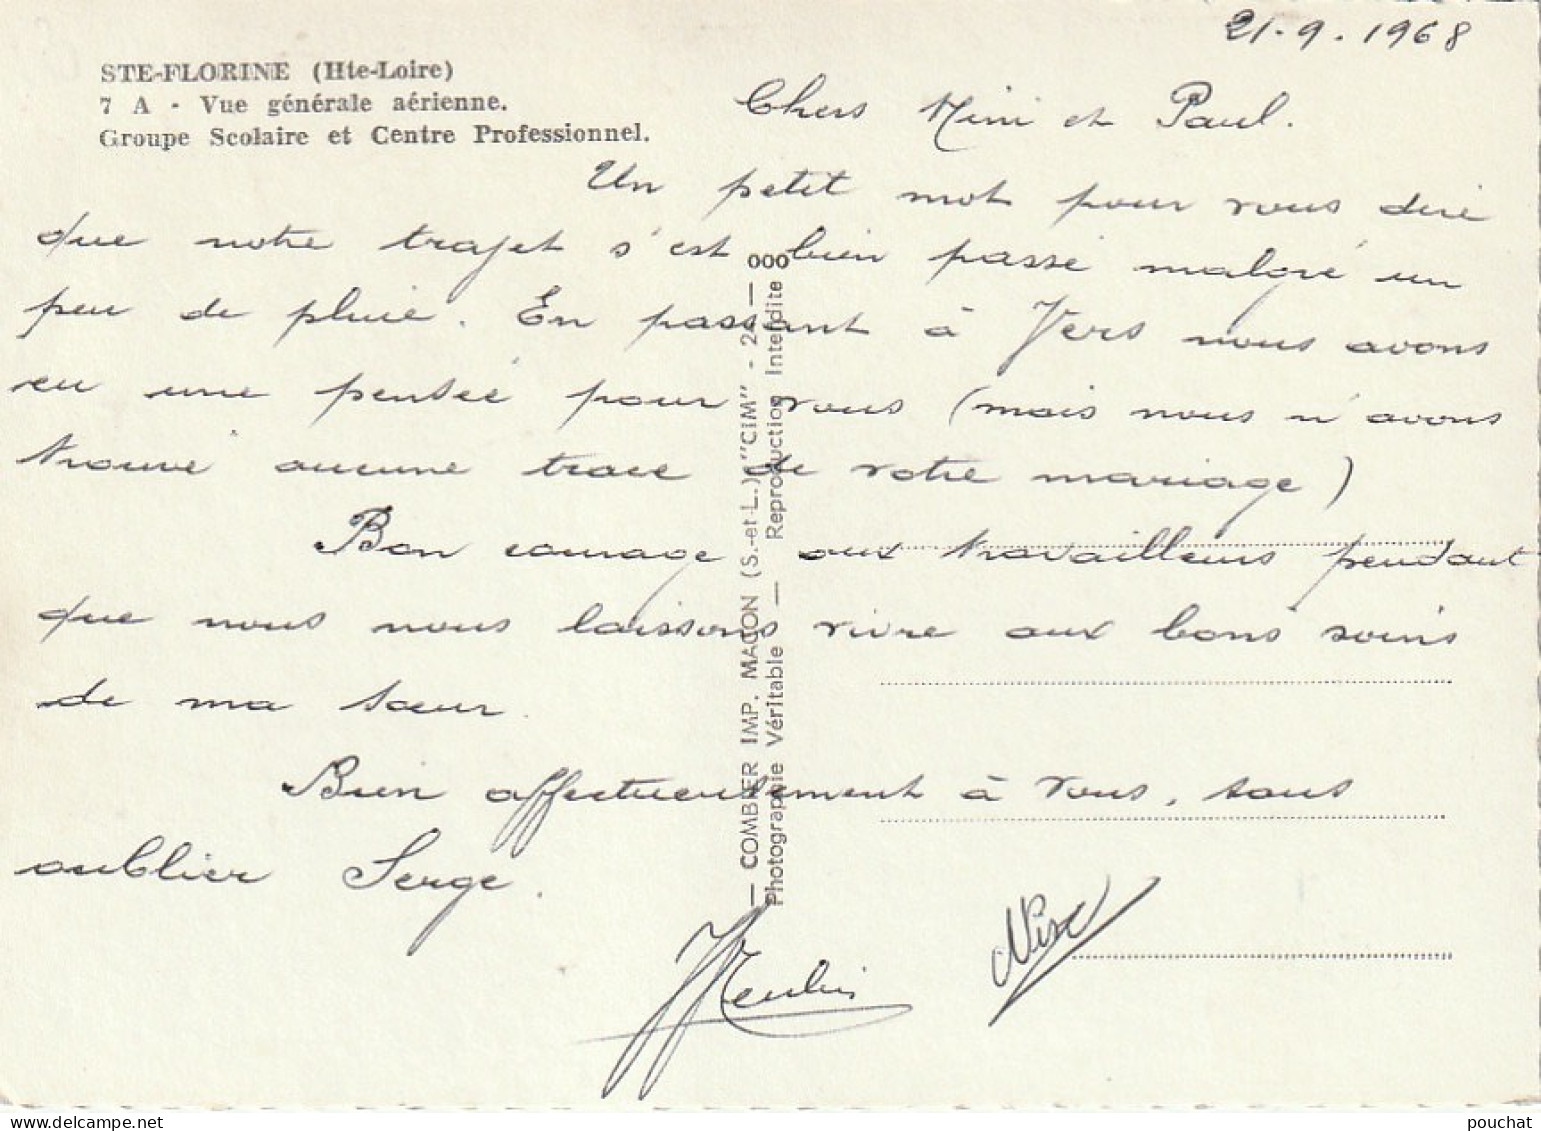 21.9.1968
STE-FLORINE (Hte-Loire)
7 A - Vue générale aérienne.
Groupe Scolaire et Centre Professionnel.
Chers Mini et Paul.
Un petit mot pour vous dire
que notre trajet s'est bien passé malgré un
peu de pluie. En passant à Vers nous avons
eu une pensée pour vous (mais nous n'avons
trouvé aucune trace de votre mariage)
Bon courage aux travailleurs pendant
que nous nous laissons vivre aux bons soins
de ma sœur.
Bien affectueusement à vous, sans
oublier Serge.
— COMBIER IMP. MACON (S.-et-L.) "CIM" - 2 — 000
Photographie Véritable — Reproduction Interdite
delcampe.net
pouchat